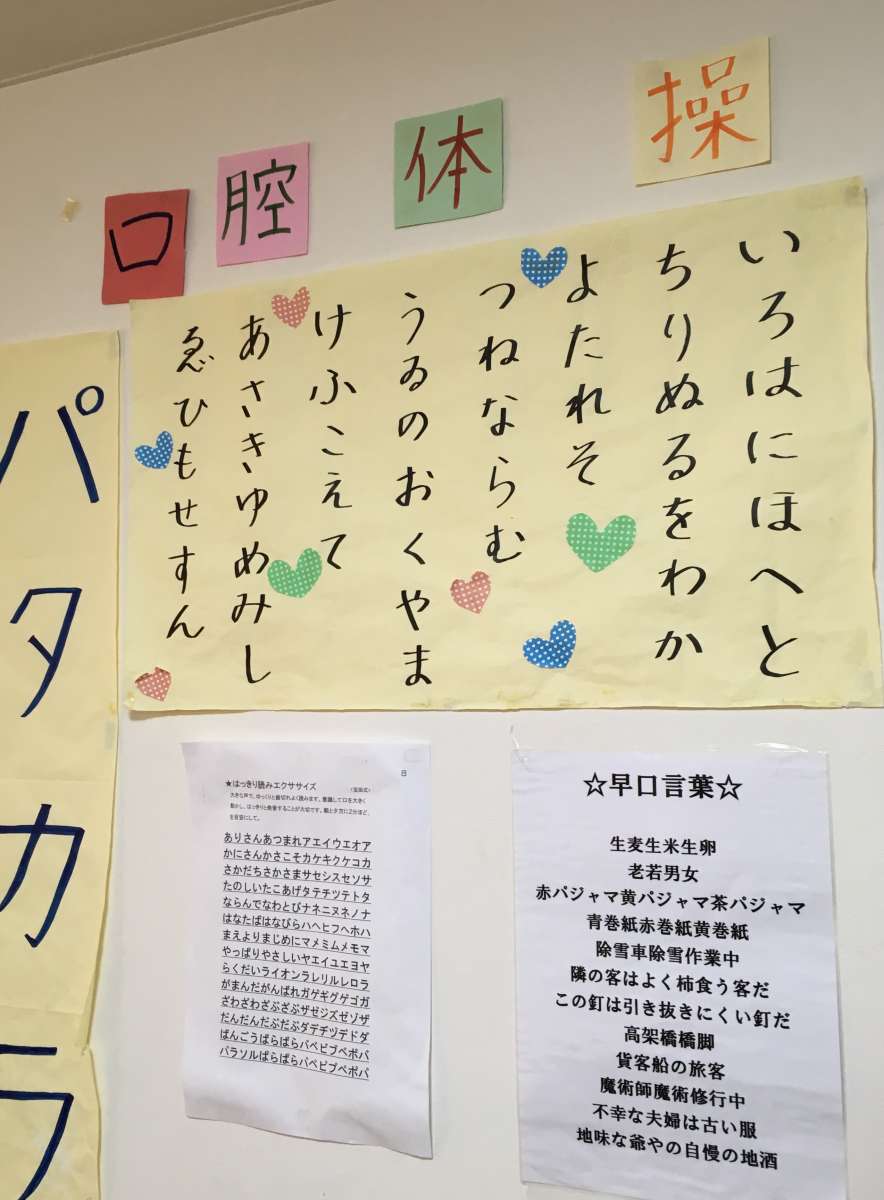 口腔体操
いろはにほへと
ちりぬるをわか
よたれそ
つねならむ
うゐのおくやま
けふこえて
あさきゆめみし
ゑひもせすん
パタカラ
日
★はっきり読みエクササイズ
大きな声で、ゆっくりと歯切れよく読みます。意識して口を大きく
動かし、はっきりと発音することが大切です。朝と夕方に2分ほど、
を目安にして。
ありさんあつまれアエイウエオア
かにさんかさこそカケキクケコカ
さかだちさかさまサセシスセソサ
たのしいたこあげタテチツテトタ
ならんでなわとびナネニヌネノナ
はなたばはなびらハヘヒフヘホハ
まえよりまじめにマメミムメモマ
やっぱりやさしいヤエイユエヨヤ
らくだいライオンラレリルレロラ
がまんだがんばれガゲギグゲゴガ
ざわざわざぶざぶザゼジズゼゾザ
だんだんだぶだぶダデヂヅデドダ
ばんごうばらばらバベビブベボバ
パラソルぱらぱらパペピプペポパ
☆早口言葉☆
生麦生米生卵
老若男女
赤パジャマ黄パジャマ茶パジャマ
青巻紙赤巻紙黄巻紙
除雪車除雪作業中
隣の客はよく柿食う客だ
この釘は引き抜きにくい釘だ
高架橋橋脚
貨客船の旅客
魔術師魔術修行中
不幸な夫婦は古い服
地味な爺やの自慢の地酒